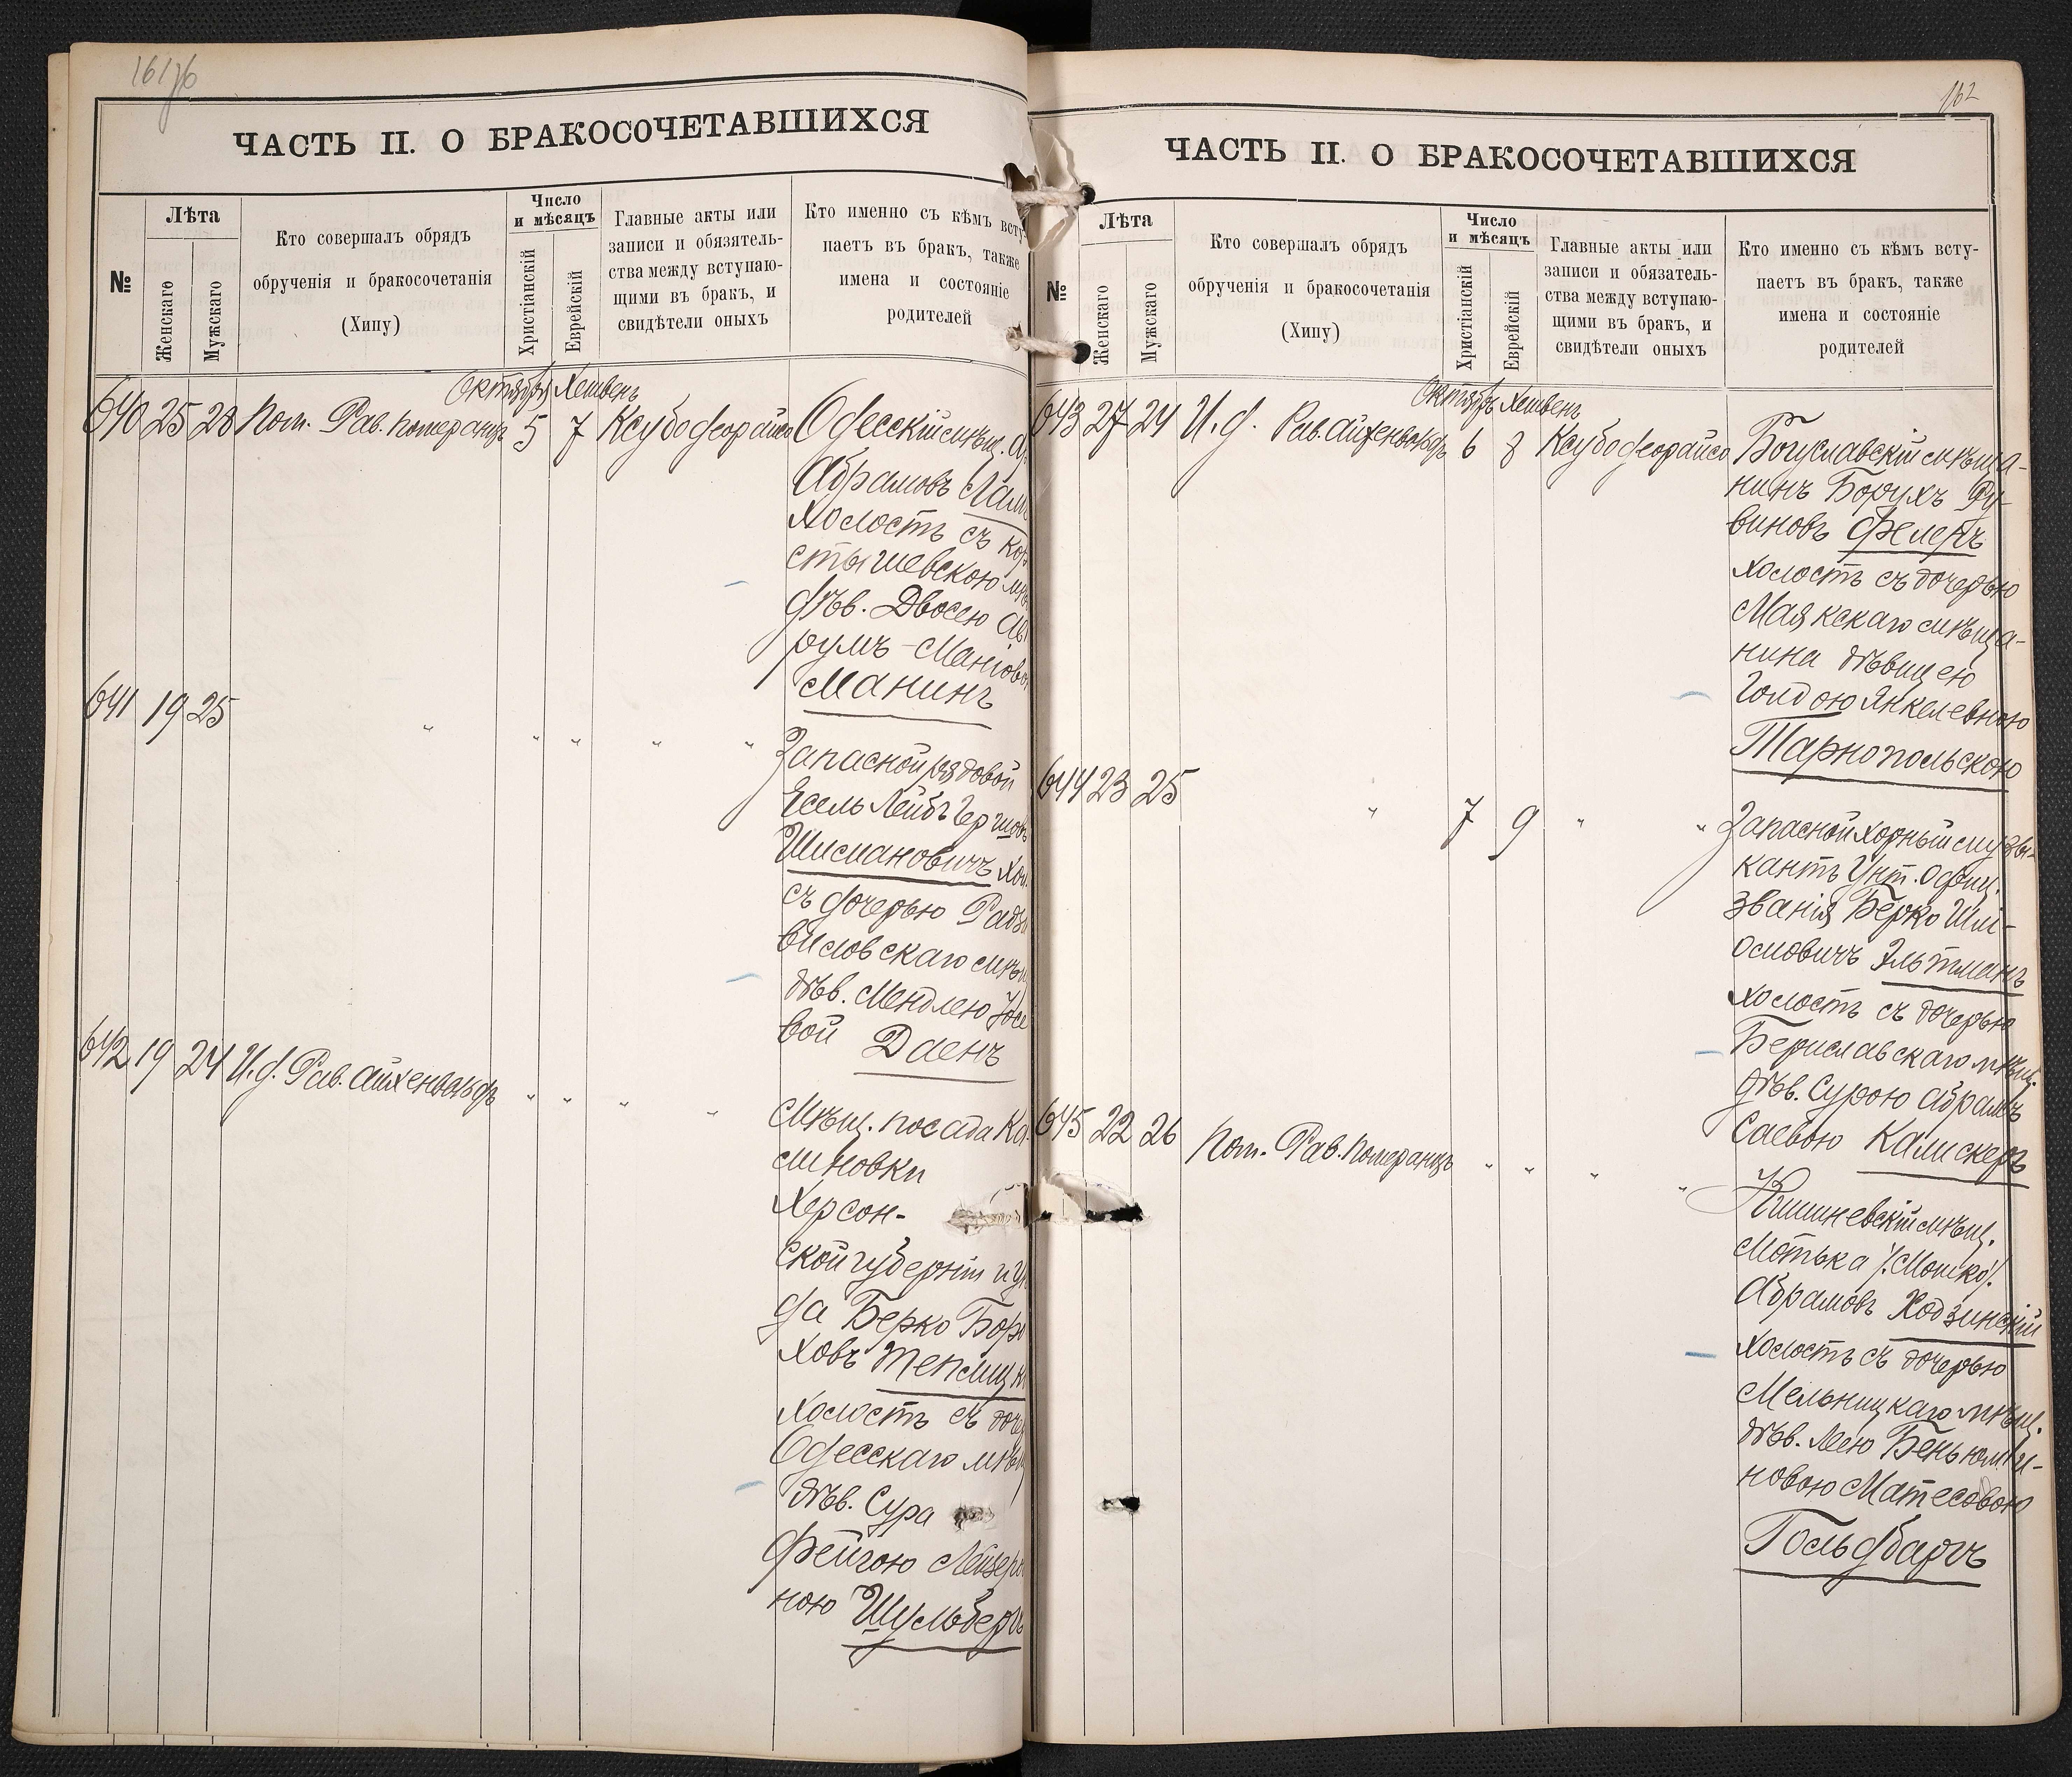 161 об
ЧАСТЬ II. О БРАКОСОЧЕТАВШИХСЯ
№
Лѣта
Женскаго
Мужскаго
Кто совершалъ обрядъ
обрученія и бракосочетанія
(Хипу)
Число
и мѣсяцъ
Христіанскій
Еврейскій
Главные акты или
записи и обязятель-
ства между вступаю-
щими въ бракъ, и
свидѣтели оныхъ
Кто именно съ кѣмъ всту-
паетъ въ бракъ, также
имена и состояніе
родителей
Октябрь Хешвенъ
640 25 28 Пом. Рав. Померанцъ 5 7 Ксубо деорайсо Одесскій мѣщ.
Абрамовъ
холостъ съ
стышевскою
дѣв. Двосею
румъ-Маніово
Манинъ
641 19 25 " " " " "
Запасной рядовой
Есель Лейбъ Гершовъ
Шисмановичъ
съ дочерью
виловскаго
дѣв. Мендлею
вой Даенъ
642 19 24 И.д. Рав. Айхенвальдъ " " " "
Мѣщ. посада Ка-
линовки
Херсон-
ской губерніи и
да Берко
ховъ
холостъ съ
Одесскаго
дѣв. Сура
Фейгою
ною Шульбергъ
162
ЧАСТЬ II. О БРАКОСОЧЕТАВШИХСЯ
№
Лѣта
Женскаго
Мужскаго
Кто совершалъ обрядъ
обрученія и бракосочетанія
(Хипу)
Число
и мѣсяцъ
Христіанскій
Еврейскій
Главные акты или
записи и обязатель-
ства между вступаю-
щими въ бракъ, и
свидѣтели оныхъ
Кто именно съ кѣмъ всту-
паетъ въ бракъ, также
имена и состояніе
родителей
Октябрь Хешвенъ
643 27 24 И.д. Рав. Айхенвальдъ 6 8 Ксубо деорайсо Богуславскій мѣща-
нинъ Борухъ Ру-
виновъ Фелеръ
холостъ съ дочерью
Маякскаго мѣща-
нина дѣвицею
Голдою Янкелевною
Тарнопольскою
644 23 25 " 7 9 " "
Запасной хорный музы-
кантъ Унт. Офиц.
званія Берко Шлі-
омовичъ Эльтманъ
холостъ съ дочерью
Бериславскаго мѣщ.
дѣв. Сурою Абрамъ
Саевою Калискеръ
645 22 26 Пом. Рав. Померанцъ " " " "
Кишиневскій мѣщ.
Мотька /:Мошко:/
Абрамовъ Ходзинскій
холостъ съ дочерью
Мельницкаго мѣщ.
дѣв. Лею Беньями-
новою Матесовою
Гольдбаргъ